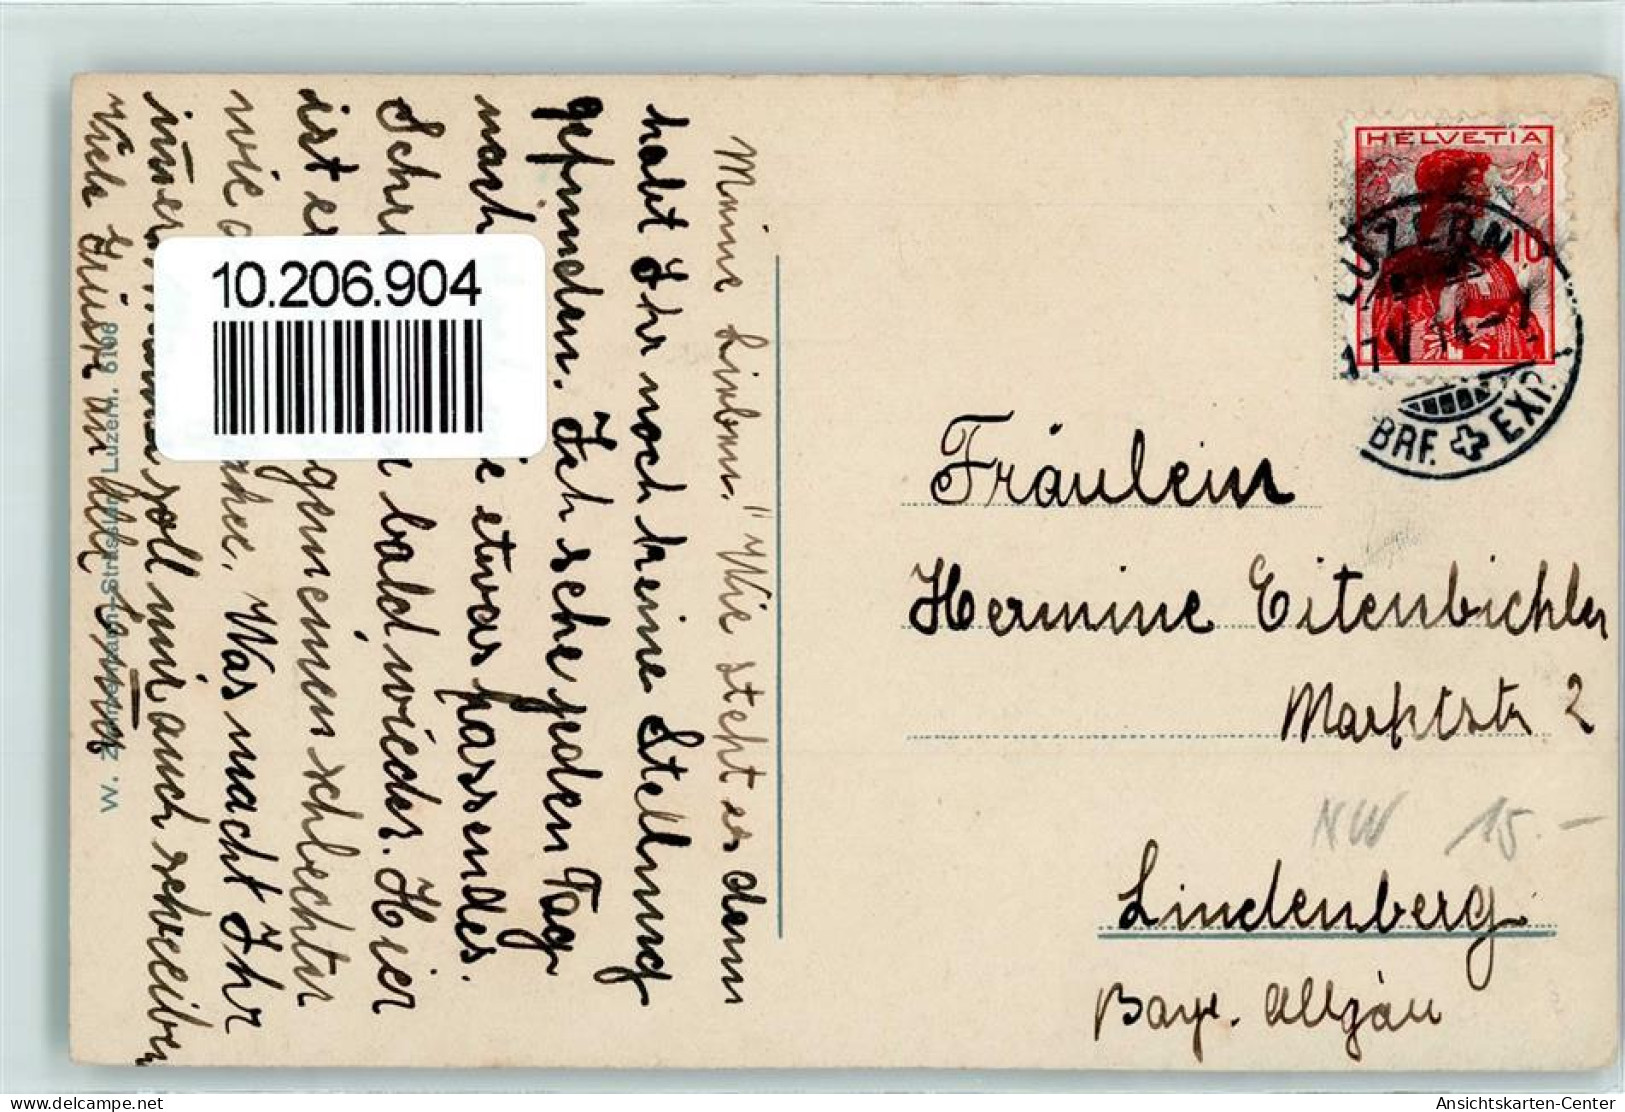 Meine Lieben! "Wie steht es denn
habt Ihr noch keine Stellung
gefunden. Ich sehe jeden Tag
nach etwas passendes.
Schr bald wieder. Hier
ist es gemein schlechter
wie Was macht Ihr
im̅er. soll mir auch schreiben
Viele Grüsse an alle Em̅a
W. Zimmermann-Strässle, Luzern. 6106
10.206.904
HELVETIA
10
LUZERN
17 V 14-7
BRF. EXP.
Fräulein
Hermine Eitenbichler
Marktstr 2
NW 15.-
Lindenberg
Bayr. Allgäu
Ansichtskarten-Center